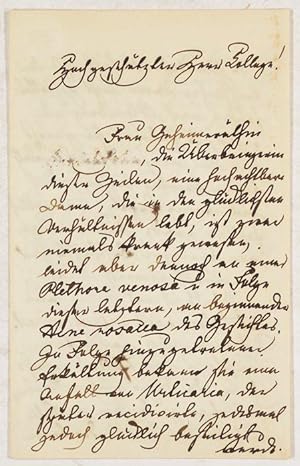 Hochgeschätzter Herr College!
Frau Geheimeräthin
, die Überbringerin
dieser Zeilen, eine hochachtbare
Dame, die in den glücklichsten
Verhältnissen lebt, ist zwar
niemals krank gewesen,
leidet aber dennoch an einer
Plethora venosa u in Folge
dieser letztern, an beginnender
Acne rosacea des Gesichtes.
In Folge eingetretener
Erkältung bekam sie einen
Anfall von Urticaria, der
später recidivirte, jedesmal
jedoch glücklich beseitigt
wurde.